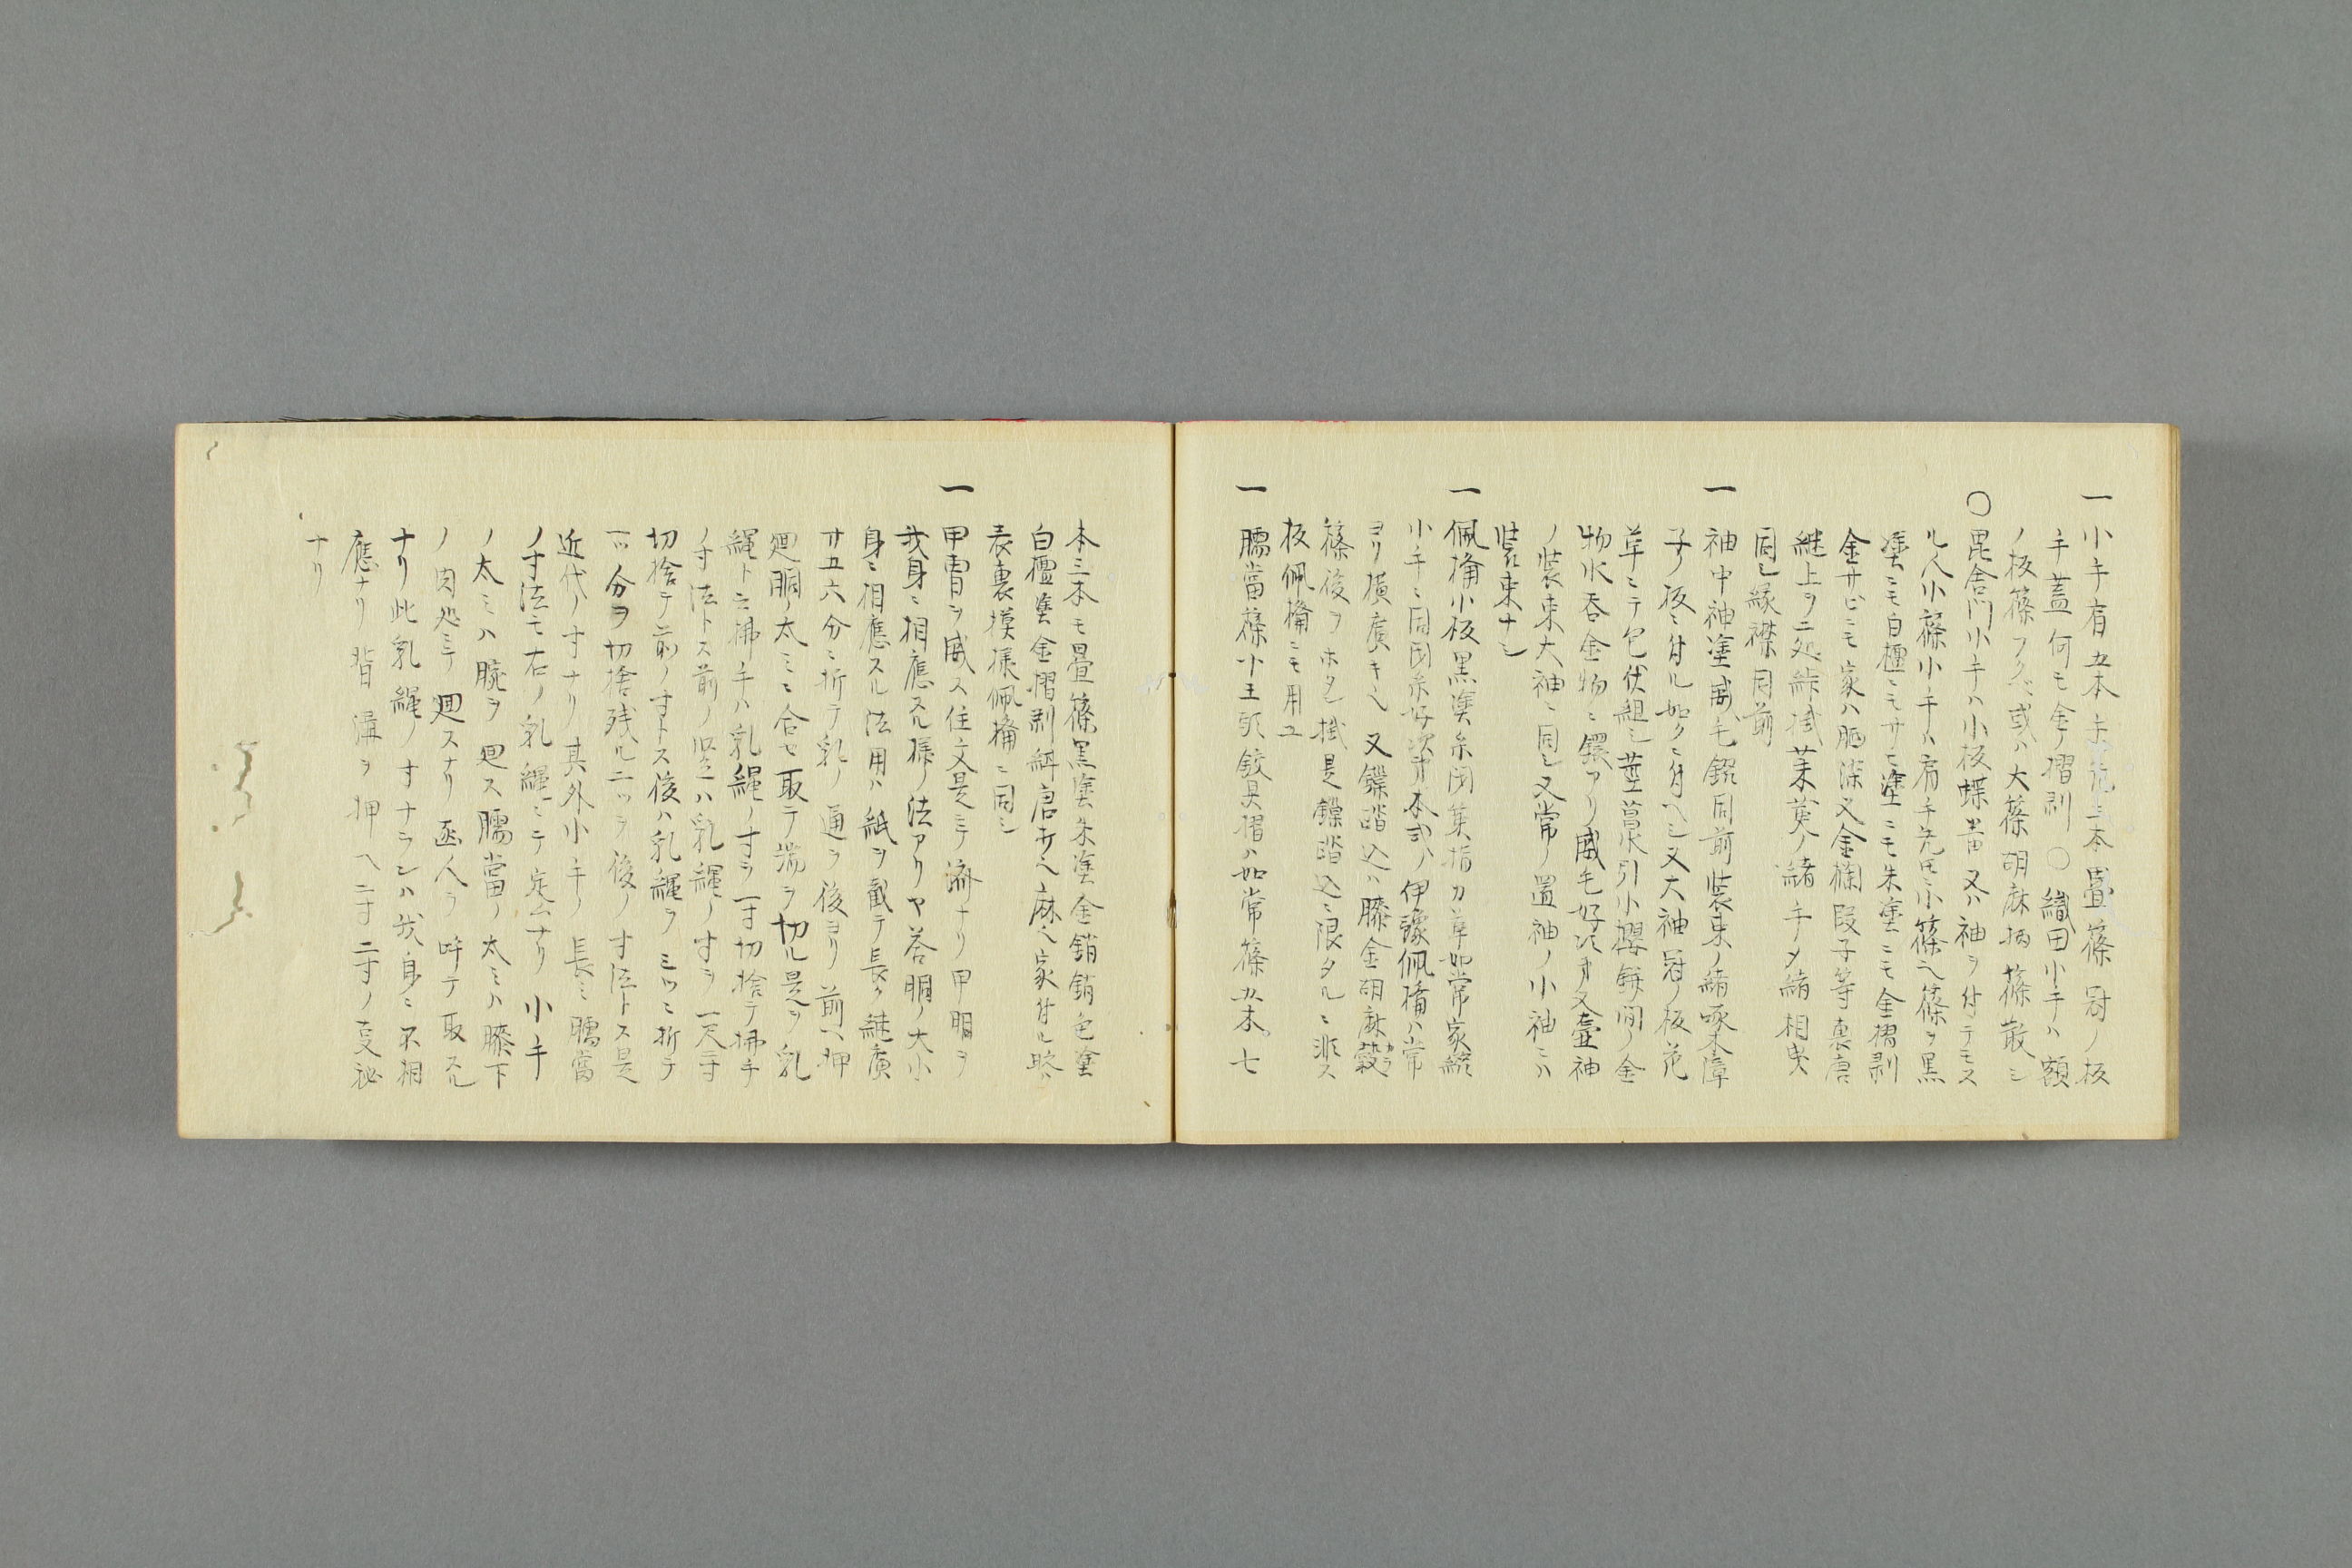 一小手有五本手先三本畳篠冠ノ板
手蓋何モ金ノ摺剥〇織田小手ハ額
ノ板篠フクベ或ハ大篠胡麻柄篠散シ
〇毘舎門小手ハ小板蝶番又ハ袖ヲ付テモス
ル人小篠小手ハ肩手先ニ小篠ヘ篠ヲ黒
塗ニモ白檀ニモサモ塗ニモ朱塗ニモ金摺剥
金サビニモ家ハ晒深又金襴段子等裏唐
継上ヲ二処綷掛茱萸ノ緒手ノ緒相曳
同シ縁襟同前
一袖中袖塗威毛鋲同前装束ノ緒啄木障
子ノ板ニ付ル如クニ付ヘシ又大袖冠ノ板花
革ニテ包伏組シ莖菖蒲引小櫻鋲間ノ金
物水呑金物ニ鐶アリ威毛好次第又壷袖
ノ装束大袖ニ同シ又常ノ置袖ノ小袖ニハ
装束ナシ
一佩楯小板黒塗糸閉菜指力革如常家綻
小手ニ同閉糸好次第本式ノ伊豫佩楯ハ常
ヨリ横廣キヘ又鏁踏込ハ膝金胡麻穀カラ
篠後ヲホタシ掛是鏁踏込ニ限タルニ非ス
板佩楯ニモ用ユ
一臑當篠十王頭鉸具摺ハ如常篠五本七
本三本モ畳篠黒塗朱塗金錆錆色塗
白檀塗金摺剥緋唐芥ヘ麻ヘ家付ル略ス
表裏模様佩楯ニ同シ
一甲冑ヲ威ス仕文是ニテ濟ナリ甲胴ヲ
我身ニ相應スル様ノ法アリヤ荅胴ノ大小
身ニ相應スル法用ハ紙ヲ截テ長ク継廣
廿五六分ニ折テ乳ノ通ヲ後ヨリ前ヘ押
廻胴ノ太ミニ合セ取テ端ヲ切ル是ヲ乳
縄ト云拂手ハ乳縄ノ寸ヲ一寸切捨テ拂手
ノ寸法トス前ノ竪ハ乳縄ノ寸ヲ一尺二寸
切捨テ前ノ寸トス後ハ乳縄ヲ三ツニ折テ
一ツ分ヲ切捨残ル二ツヲ後ノ寸法トス是
近代ノ寸ナリ其外小手ノ長ミ臑當
ノ寸法モ右ノ乳縄ニテ定ムナリ小手
ノ太ミハ腕ヲ廻ス臑當ノ太ミハ膝下
ノ肉処ニテ廻スナリ亟人ヲ呼テ取スル
ナリ此乳縄ノ寸ナラシハ我身ニ不相
應ナリ背溝ヲ押ヘ一寸二寸ノ支秘
ナリ